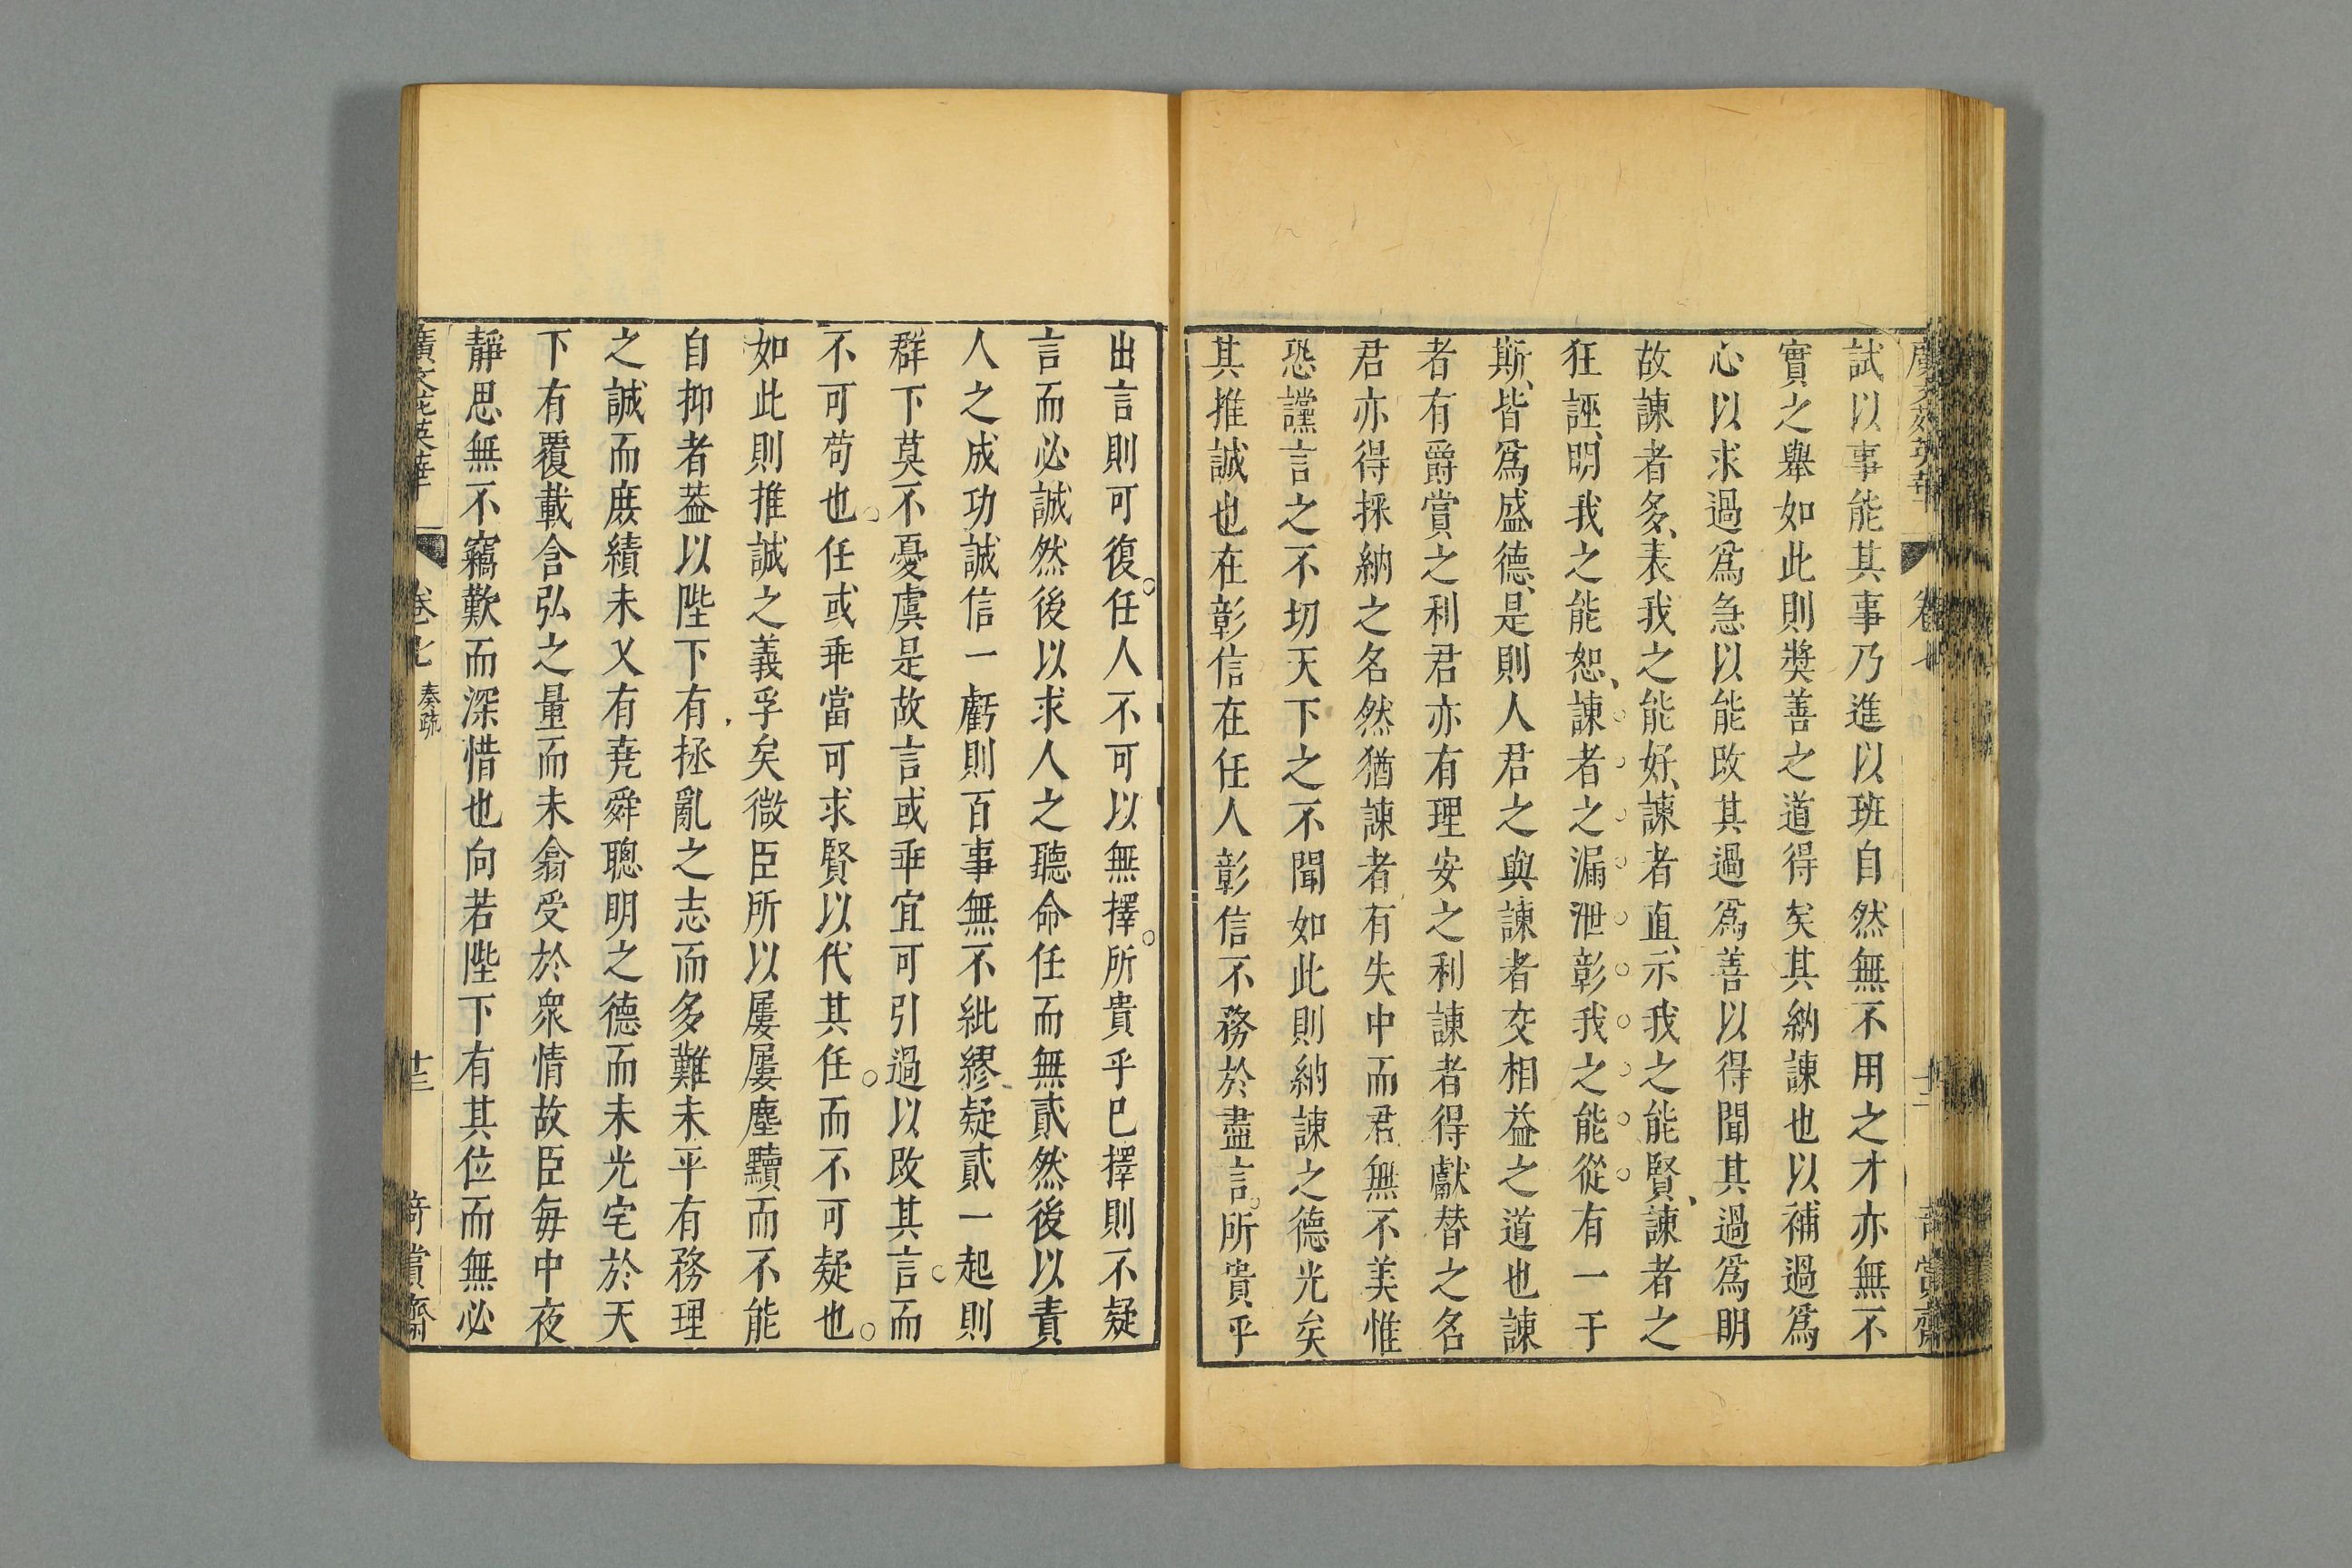 試以事能其事乃進以班自然無不用之才亦無不
實之舉如此則奬善之道得矣其納諫也以補過爲
心以求過爲急以能改其過爲善以得聞其過爲明
故諫者多、表我之能好、諫者直、示我之能賢、諫者之
狂誣、明我之能恕、諫者之漏泄彰我之能從有一于
斯、皆爲盛德、是則人君之與諫者交相益之道也諫
者有爵賞之利君亦有理安之利諫者得獻替之名
君亦得採納之名然猶諫者有失中而君無不美惟
恐讜言之不切天下之不聞如此則納諫之德光矣
其推誠也在彰信在任人彰信不務於盡言。所貴乎
出言則可復。任人不可以無擇。所貴乎已擇則不疑
言而必誠然後以求人之聽命任而無貳然後以責
人之成功誠信一虧則百事無不紕繆疑貳一起則
群下莫不憂虞是故言或乖宜可引過以改其言。而
不可苟也。任或乖當可求賢以代其任。而不可疑也。
如此則推誠之義孚矣微臣所以屢屢塵黷而不能
自抑者葢以陛下有拯亂之志而多難未平有務理
之誠而庻績未乂有尭舜聰明之德而未光宅於天
下有覆載含弘之量而未翕受於衆情故臣每中夜
靜思無不竊歎而深惜也向若陛下有其位而無必
廣文苑英華 卷七 奏疏 十三 奇賞齋